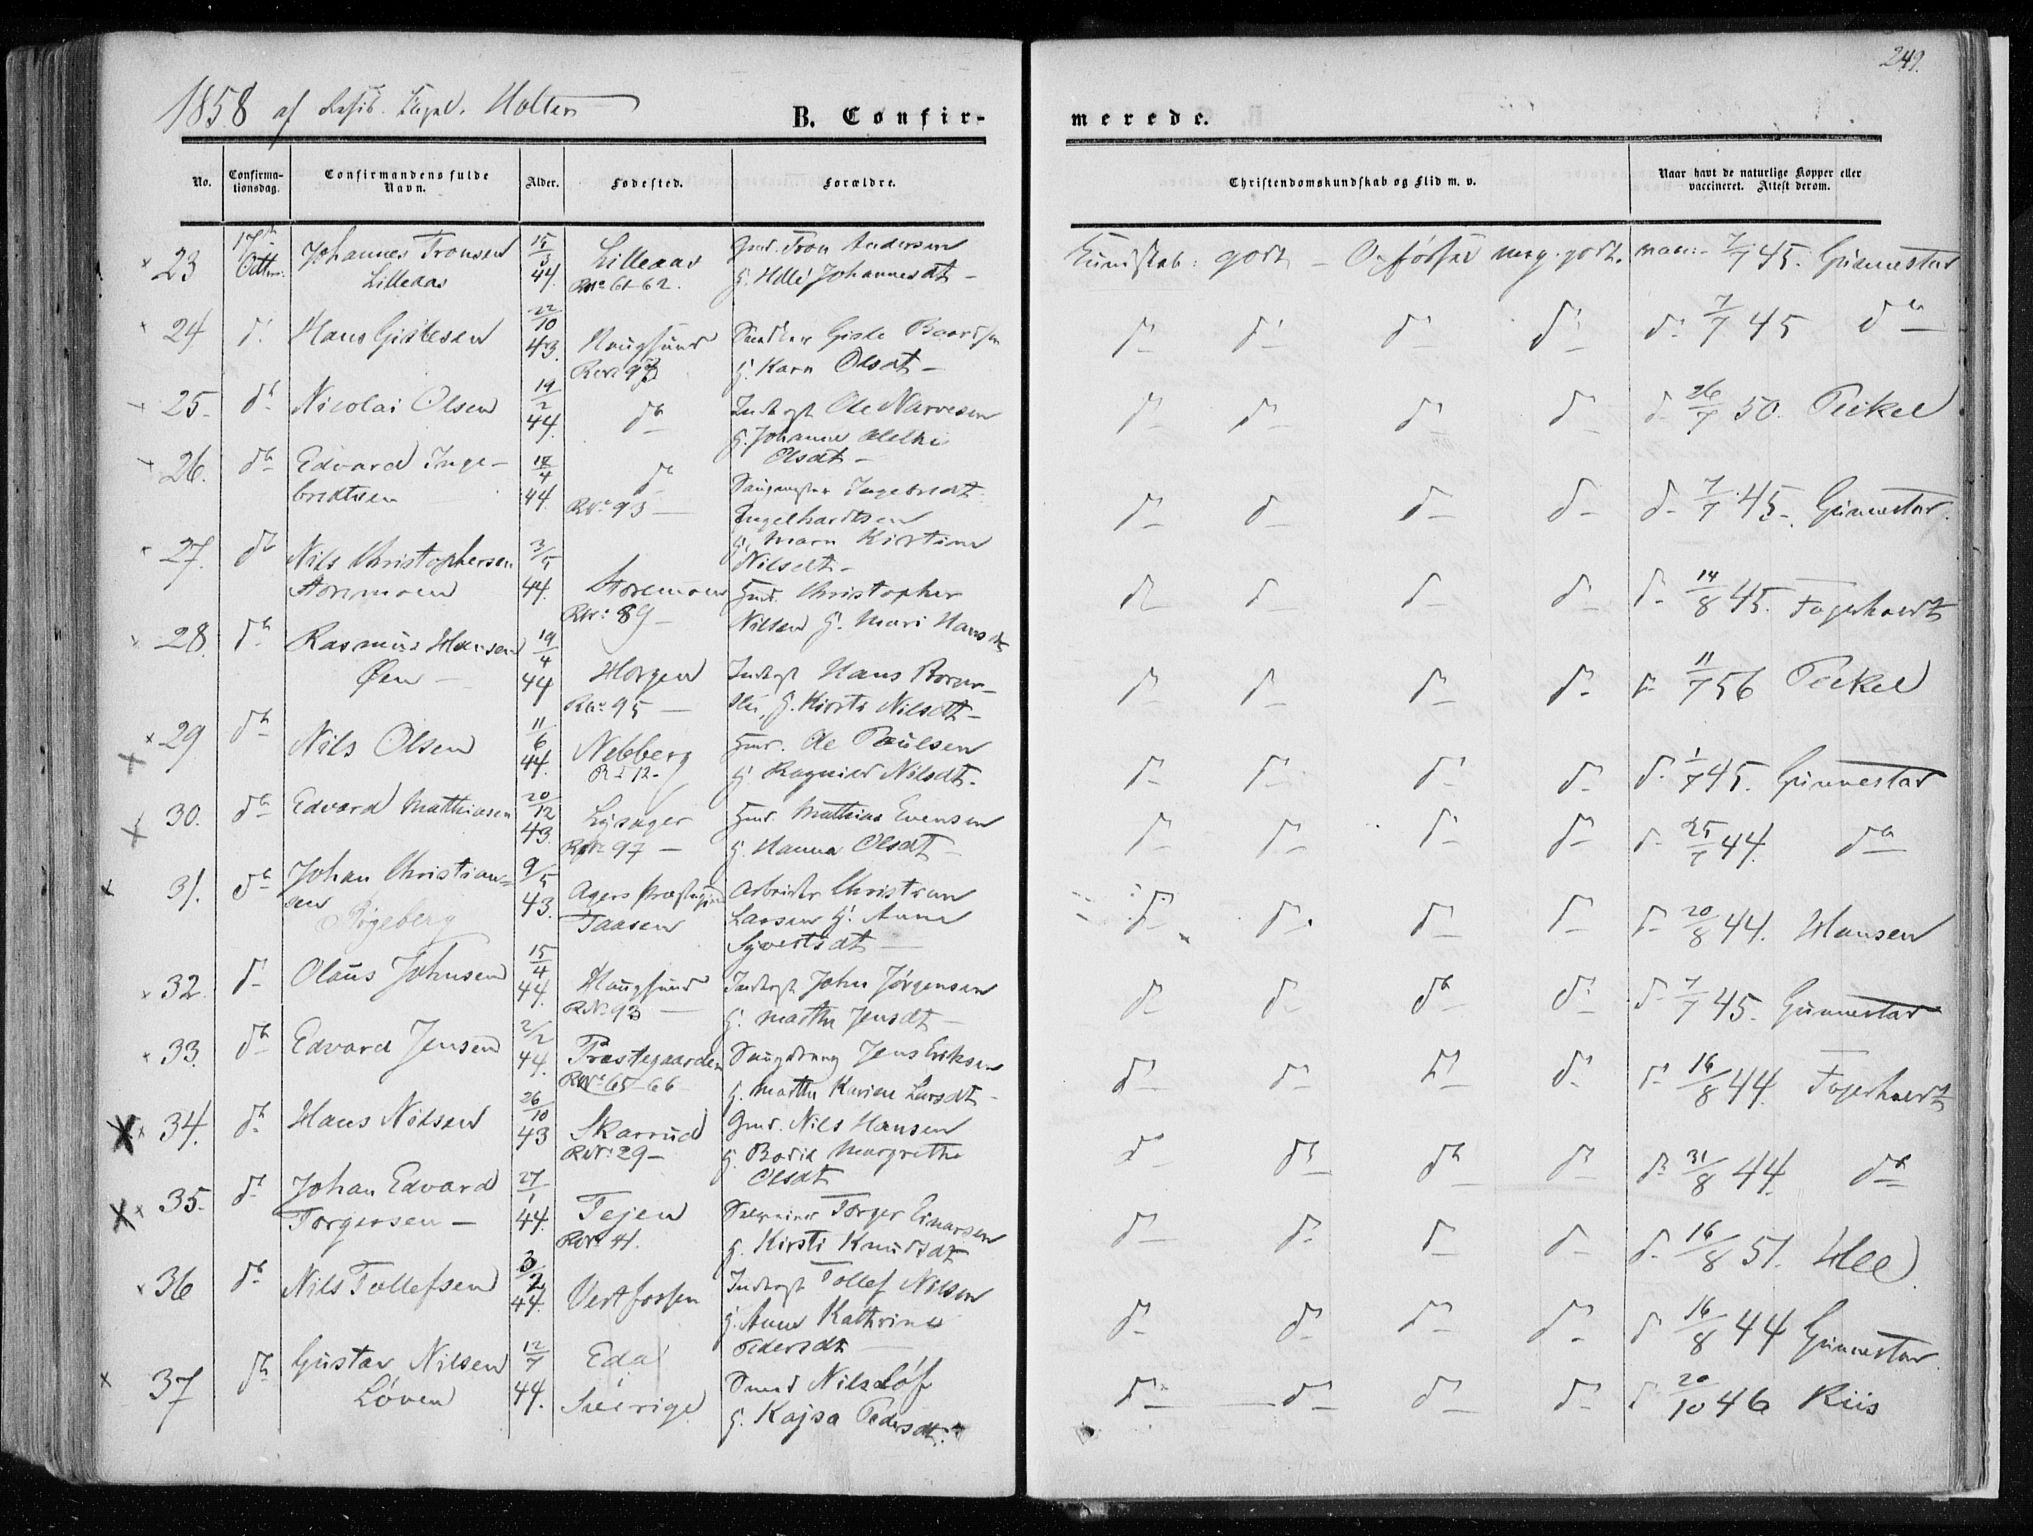 249.
1858 af Holter
B. Confir-
merede.
No.
Confirma-
tionsdag.
Confirmandens fulde
Navn.
Alder.
Fødested.
Forældre.
Christendomskundskab og Flid m. v.
Naar havt de naturlige Kopper eller
vaccineret. Attest derom.
23 17de Johannes Tronsen 15/3 Lilleaas Gmd. Tron Andersen Kundskab: godt – Opførsel meg. godt. 7/7 45. Gunnestad
Lilleaas 44. 61-62. Johannesdt –
24 do Hans Gislesen 22/10 Haugsund Gisle Baardsen do do do do do 7/7 45 do
43. 93 G. Karn Olsdt –
25. do Nicolai Olsen 19/2 do Inderst Ole Narvesen do do do do do 26/7 50. Peckel
44. G. Johanne
Olsdt –
26. do Edvard Inge- 17/4 do Ingebredt do do do do do 7/7 45. Gunnestad
bredtsen 44. 93 – Engelhardtsen
G. Marn Kirstine
Nilsdt –
27. do Nils Christophersen 3/5 Storemoen Gmd. Christopher do do do do do 14/8 45. Fogerholdt
Storemoen 44. 89 – Nilsen G. Mari Hansdt
28. do Rasmus Hansen 19/4 Horgen Inderst Hans do do do do do 11/7 56 Peckel
Øen – 44 95 – G. Kirsti Nilsdt –
29 do Nils Olsen 11/6 Nebberg Gmd. Ole Paulsen do do do do do 1/7 45. Gunnestad
44. 12 – G. Ragnild Nilsdt.
30. do Edvard Mathiasen 20/12 Lysager Gmd. Mathias Evensen do do do do do 25/7 44. do
43. 97 – G. Hanna Olsdt –
31. do Johan Christian- 9/5 Agers Præstegjeld Arbeider Christian do do do do do 20/8 44. Hansen
sen 43. Taasen Larsen G. Anne
Røgeberg Syvertsdt –
32 do Olaus Johnsen 15/4 Haugsund Inderst John Jørgensen do do do do do 7/7 45. Gunnestad
44. 93 – G. Marthe Jensdt –
33. do Edvard Jensen 2/2 Præstegaarden Jens Eriksen do do do do do 16/8 44. Fogerholdt
44. 65-66 G. Marthe Karine Larsdt –
34. do Hans Nilsen 26/10 Skarrud Gmd. Nils Hansen do do do do do 31/8 44. do
43 29 – G. Margrethe
Olsdt
35. do Johan Edvard 27/1 Tejen Torger Einarsen do do do do do 16/8 51. Hee
Torgersen – 44. 41. G. Kirsti Knudsdt
36 do Nils Tollefsen 3/2 Vestfossen Inderst Tollef Nilsen do do do do do 16/8 44 Gunnestad
44. G. Anne Kathrine
Pedersdt
37 do Gustav Nilsen 12/7 Eda Nils Löf do do do do do 20/10 46 Riis
Löven 44. Sverige G. Kajsa Pedersdt.